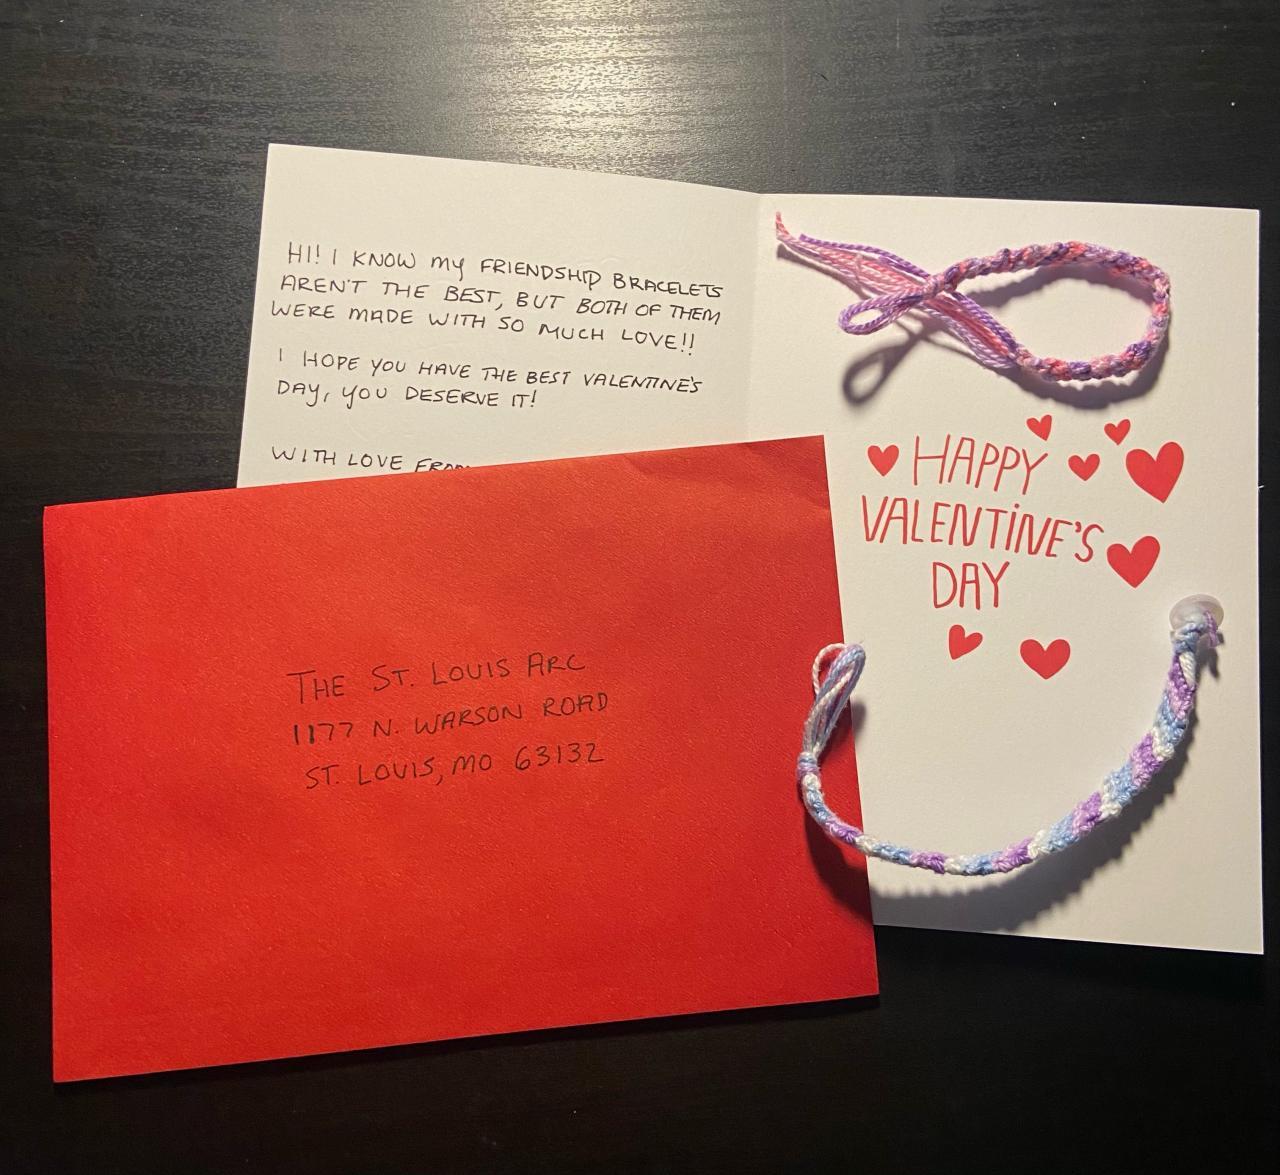 HI! I KNOW my FRIENDSHIP BRACELETS
AREN'T THE BEST, BUT BOTH OF THEM
WERE MADE WITH SO MUCH LOVE!!
I HOPE YOU HAVE THE BEST VALENTINE'S
DAY, YOU DESERVE IT!
WITH LOVE FROM
HAPPY
VALENTINE'S
DAY
THE ST. LOUIS ARC
1177 N. WARSON ROAD
ST. LOUIS, MO 63132